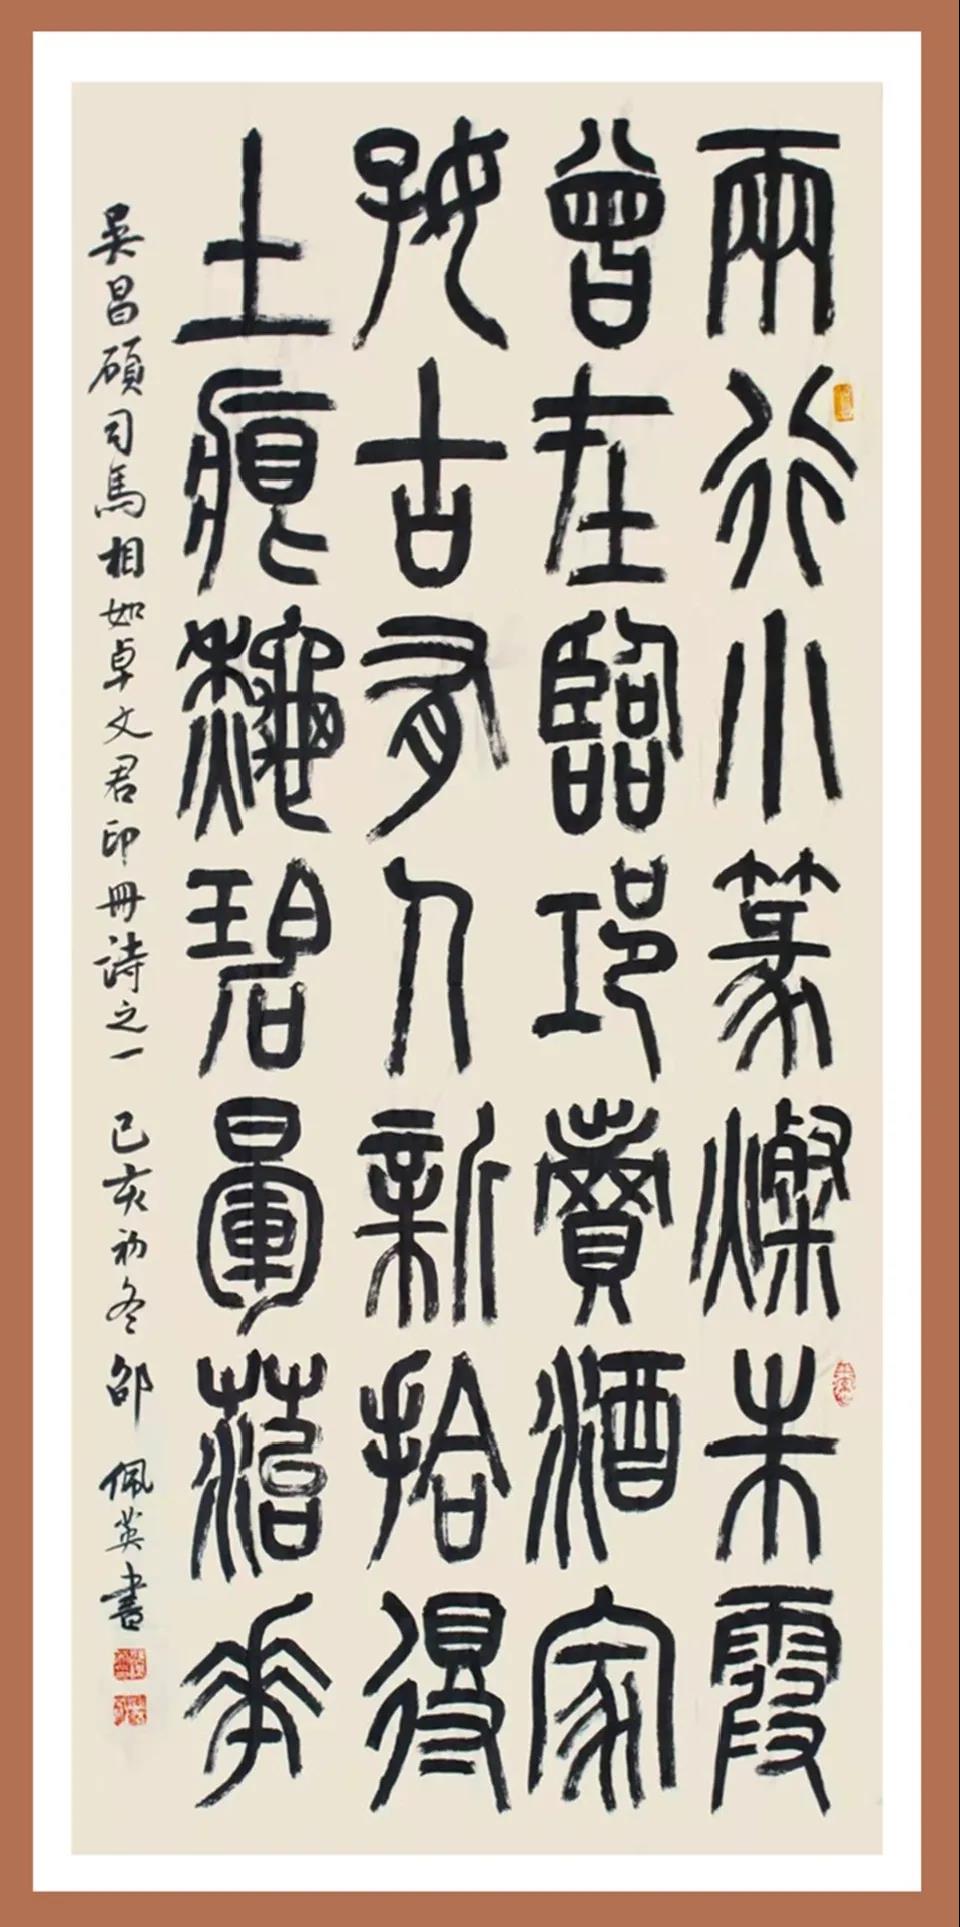 兩行小篆燦朱霞
曾在臨邛賣酒家
好古有人新拾得
土痕龝碧暈菭華
吳昌碩司馬相如卓文君印冊詩之一 己亥初冬 邵佩英書